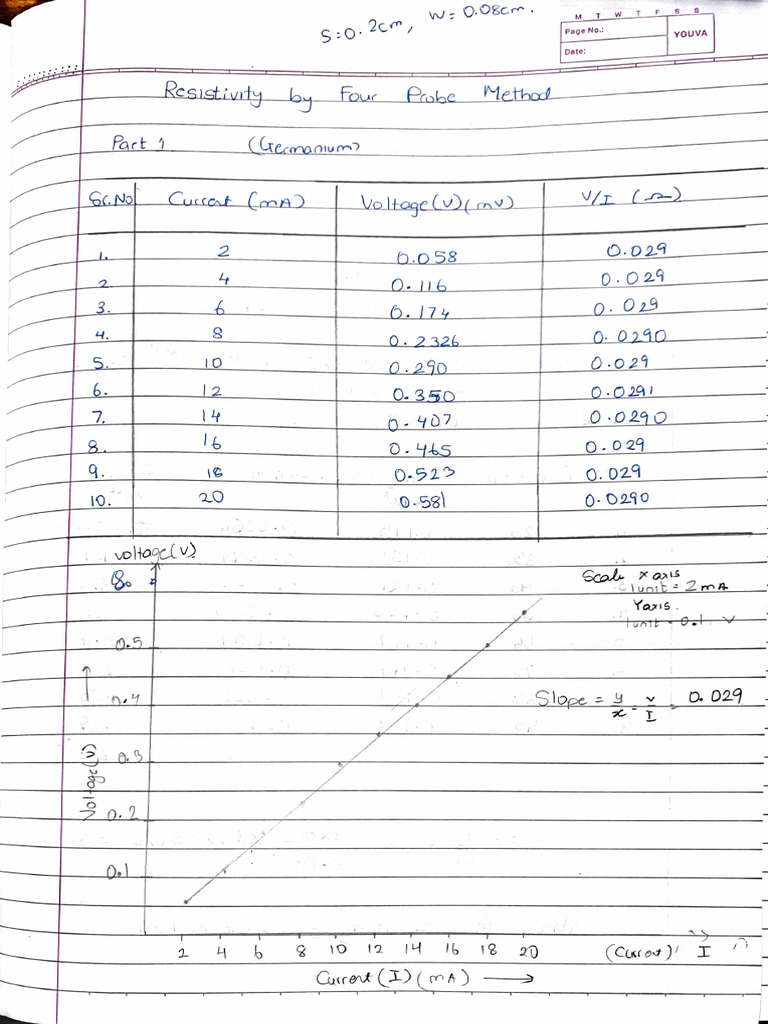 S=0.2cm, W=0.08cm.
M T W T F S S
Page No.:
YOUVA
Date:
Resistivity by Four Probe Method
Part 1 (Germanium)
Sr.No Current (mA) Voltage(V)(mV) V/I (Ω)
1. 2 0.058 0.029
2. 4 0.116 0.029
3. 6 0.174 0.029
4. 8 0.2326 0.0290
5. 10 0.290 0.029
6. 12 0.350 0.0291
7. 14 0.407 0.0290
8. 16 0.465 0.029
9. 18 0.523 0.029
10. 20 0.581 0.0290
voltage(V)
Scale x axis
1unit = 2mA
Yaxis.
1unit = 0.1 V
0.5
0.4
Slope = y/x = V/I = 0.029
0.3
Voltage(V)
0.2
0.1
2 4 6 8 10 12 14 16 18 20 (Current) I
Current (I) (mA) →